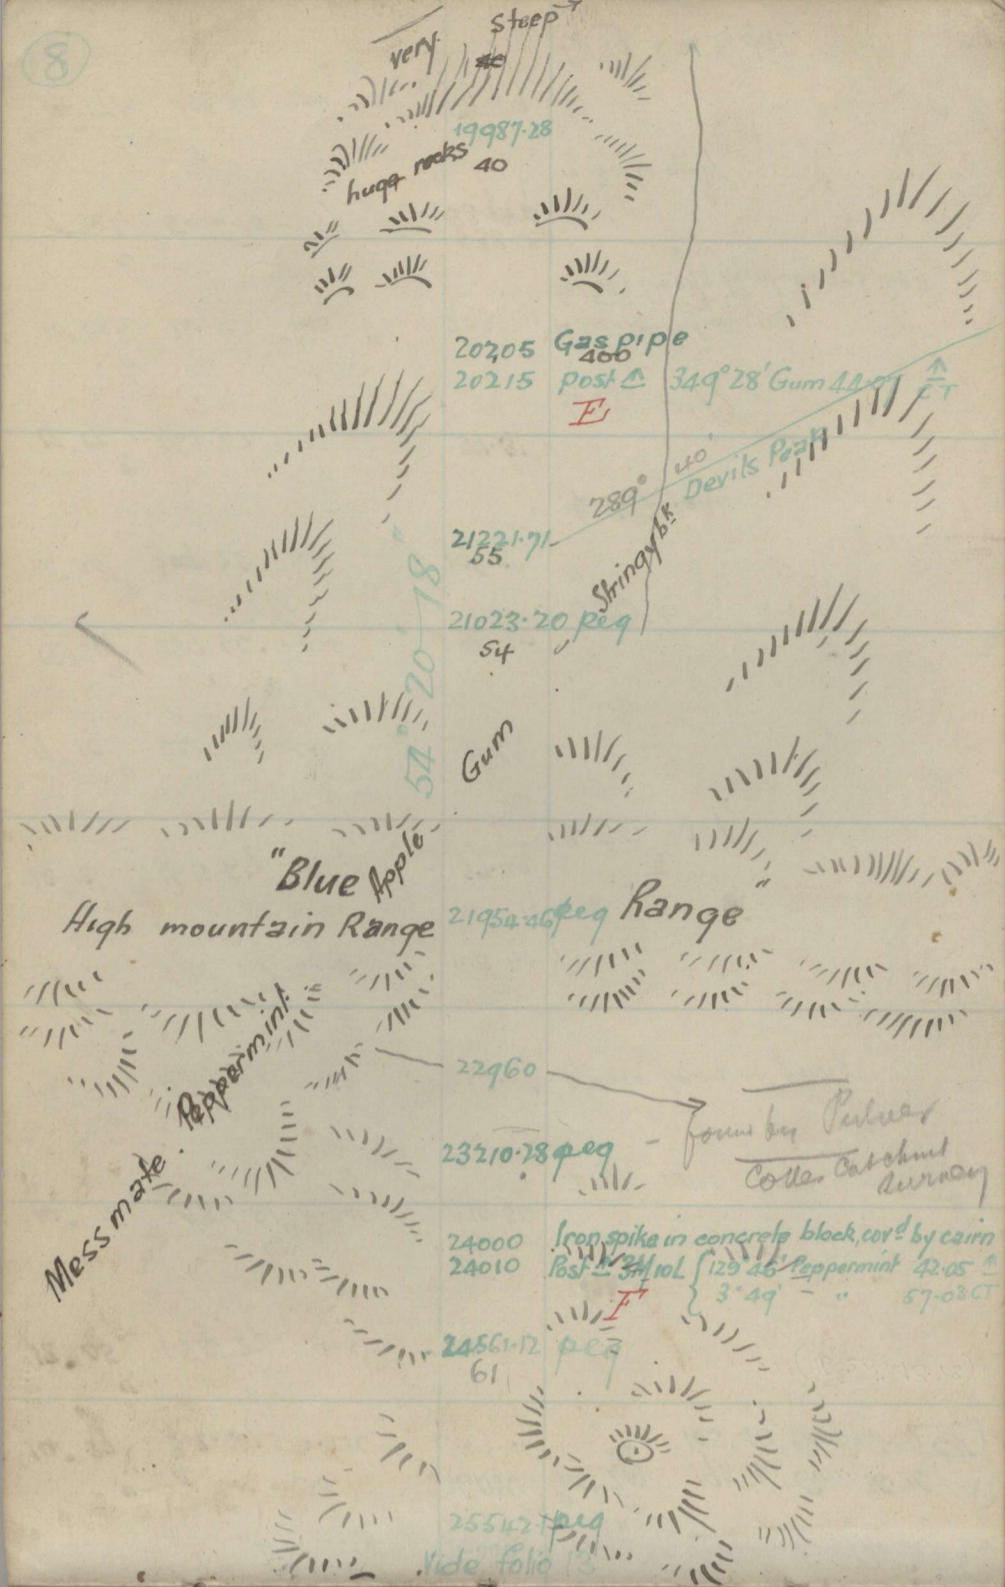 8
very steep
19987.28
huge rocks 40
20205 Gas pipe
400
20215 post 349° 28' Gum CT
E
289° 40' Devils Peak
21221.71
55
Stringybk
21023.20 peg
54
54° 20' 18"
Gum
"Blue Range"
Apple
High mountain Range 21954.46 peg
Peppermint
22960
23210.28 peg - found by
Catchment
Survey
Messmate
24000 Iron spike in concrete block, cov'd by cairn
24010 Post 10L 129° 46' Peppermint 42.05
3° 49' - " 57.03 CT
F
24561.12 peg
61
25542 peg
Vide folio 13